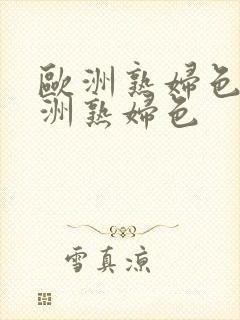 歐洲熟婦色
洲熟婦色
雪真涼